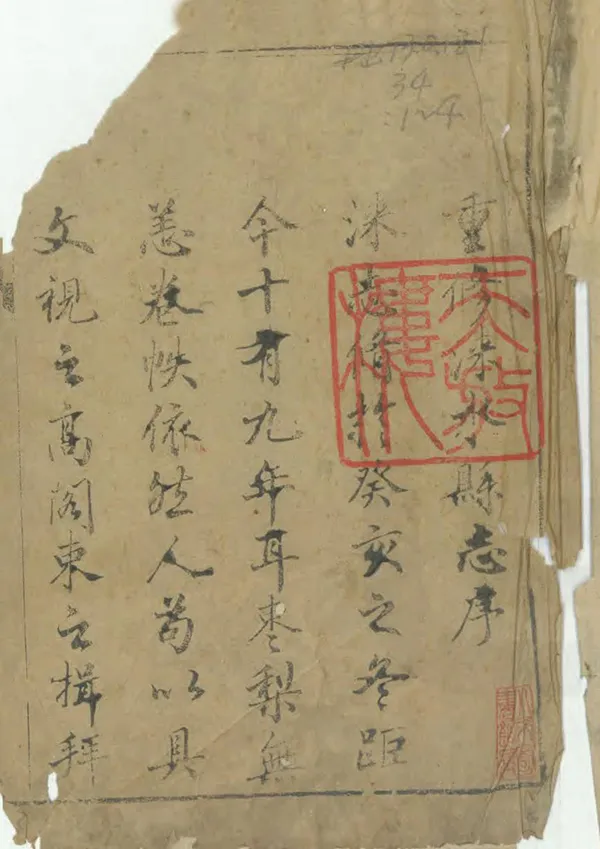 重修涞水縣志序
涞志脩於癸亥之冬距
今十有九年耳棗梨無
恙卷帙依然人苟以具
文視之高閣束之揖拜
34
天放樓